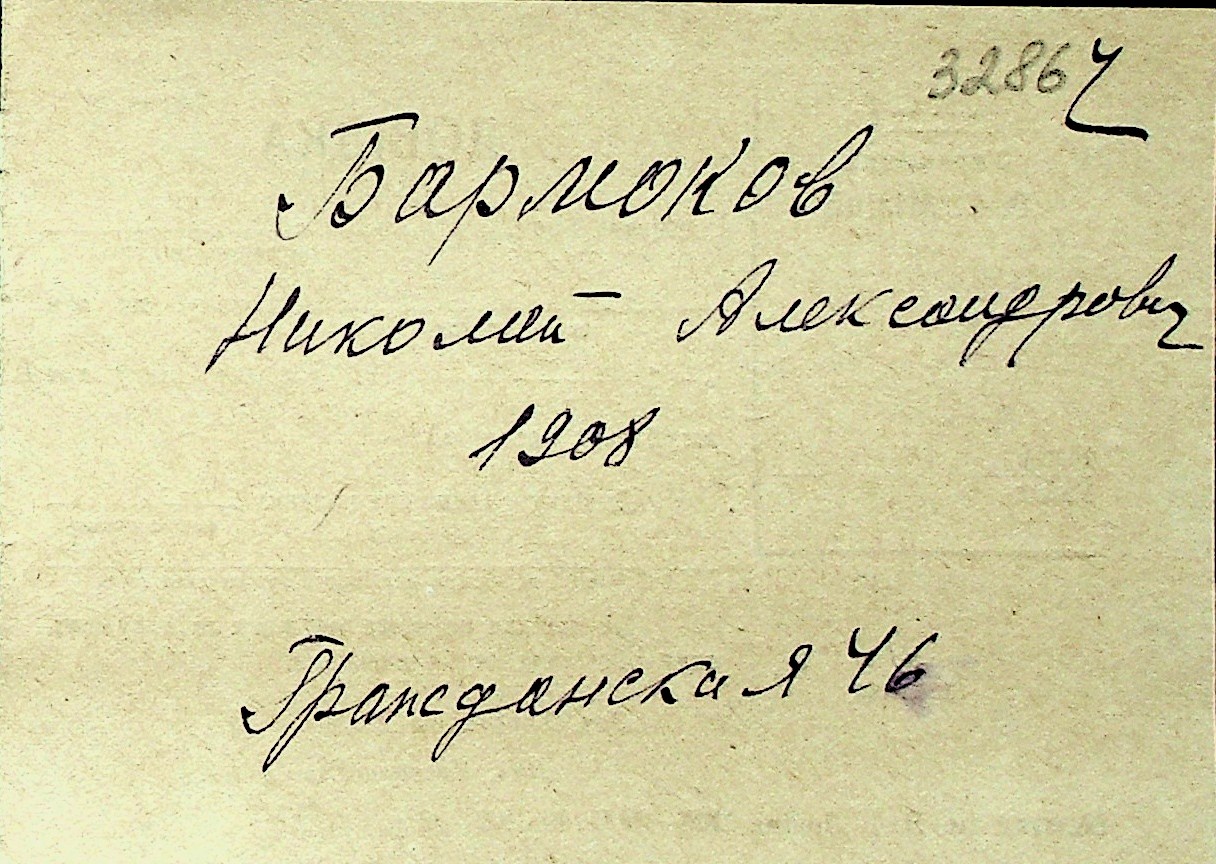 3286 ч
Бармоков
Николай Александрович
1908
Гражданская 46